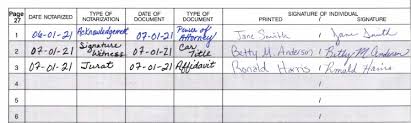 Page 27 DATE NOTARIZED TYPE OF NOTARIZATION DATE OF DOCUMENT TYPE OF DOCUMENT SIGNATURE OF INDIVIDUAL PRINTED / SIGNATURE
1 06-01-21 Acknowledgement 07-01-21 Power of Attorney Jane Smith / Jane Smith
2 07-01-21 Signature Witness 07-01-21 Car Title Betty M. Anderson / Betty M. Anderson
3 07-01-21 Jurat 07-01-21 Affidavit Ronald Harris / Ronald Harris
4
5
6